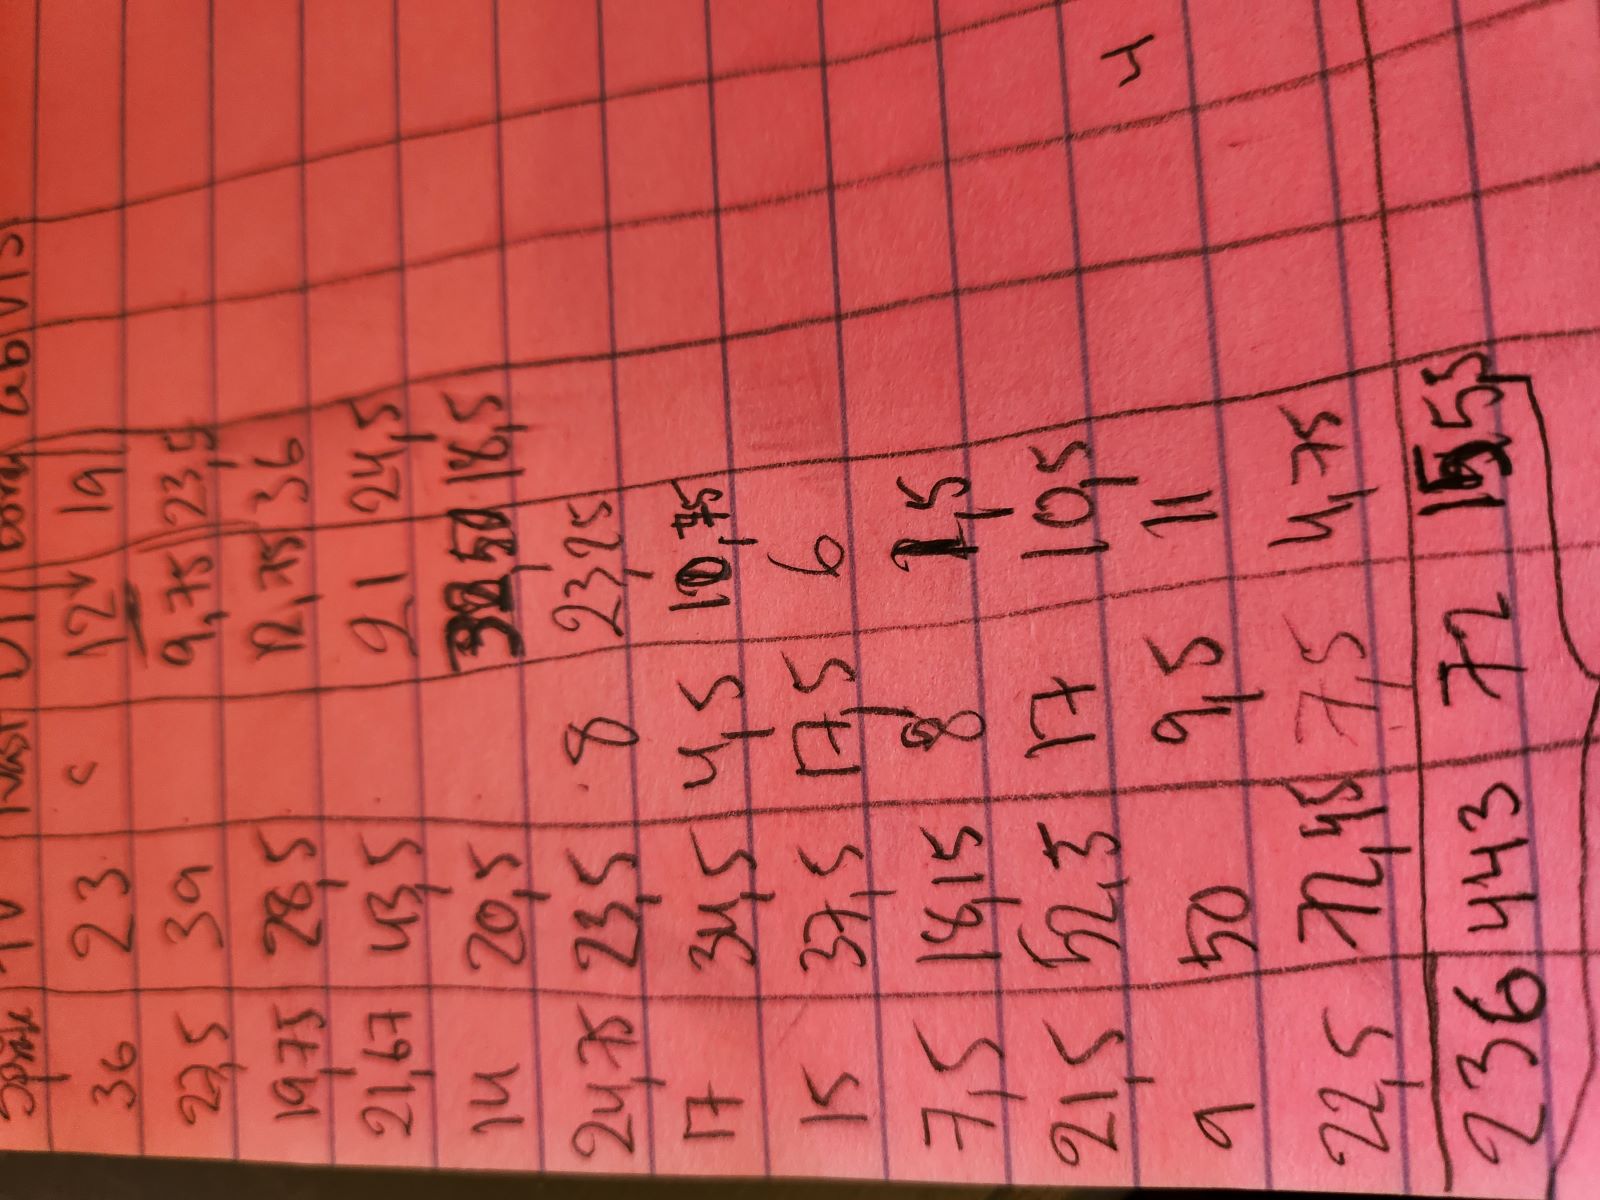 TV
36 23 12 19
27,5 39 9,75 23,5
19,75 28,5 12,75 36
21,67 43,5 21 24,5
14 20,5 18,5
24,75 23,5 8 23,25
17 34,5 4,5 10,75
15 37,5 17,5 6
7,5 18,15 8 1,5
21,5 52,5 17 10,5
4
9 50 9,5 11
22,5 72,45 7,5 4,75
236 443 72